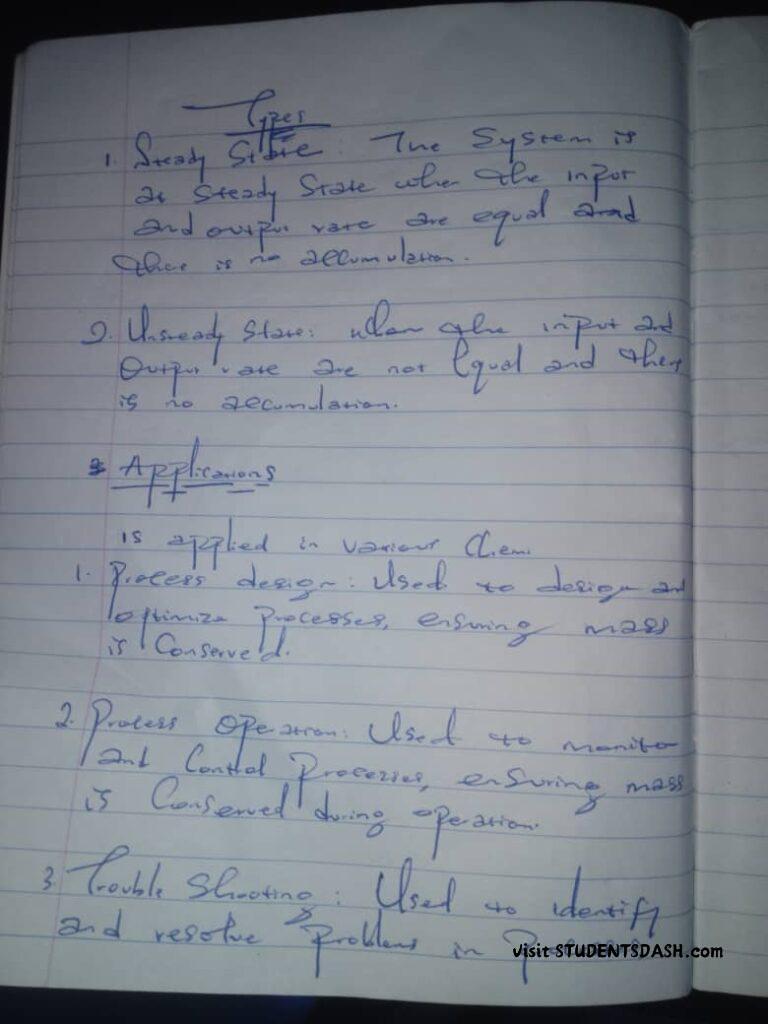 Types
1. Steady State: The System is
at Steady State when the input
and output rate are equal and
there is no accumulation.
2. Unsteady State: when the input and
Output rate are not Equal and there
is no accumulation.
Applications
is applied in various Chem.
1. Process design: Used to design and
optimize Processes, ensuring mass
is Conserved.
2. Process Operation: Used to monitor
and Control Processes, ensuring mass
is Conserved during operation.
3. Trouble Shooting: Used to identify
and resolve Problems in
visit STUDENTSDASH.com